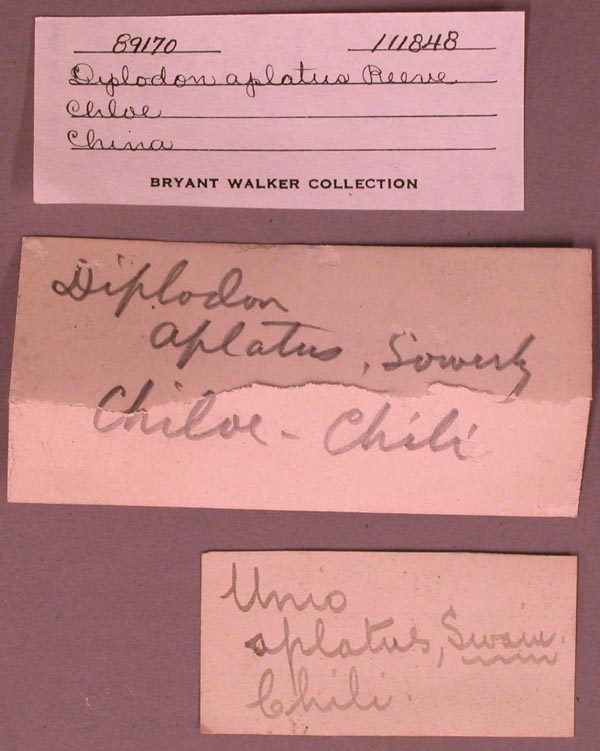 89170 111848
Diplodon aplatus Reeve
Chloe
China
BRYANT WALKER COLLECTION
Diplodon
aplatus, Sowerby
Chiloe - Chili
Unio
aplatus, Swain.
Chili